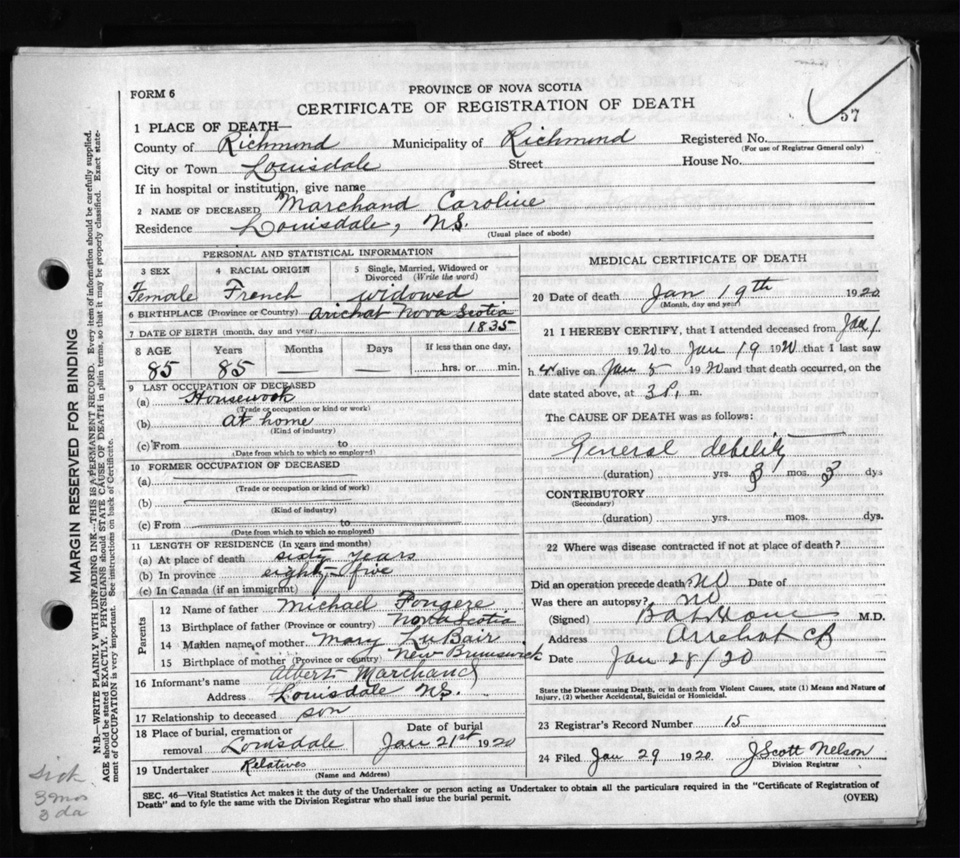 FORM 6
PROVINCE OF NOVA SCOTIA
CERTIFICATE OF REGISTRATION OF DEATH
57
1 PLACE OF DEATH—
County of Richmond Municipality of Richmond Registered No.
(For use of Registrar General only)
City or Town Louisdale Street House No.
If in hospital or institution, give name
2 NAME OF DECEASED Marchand Caroline
Residence Louisdale, N.S.
(Usual place of abode)
PERSONAL AND STATISTICAL INFORMATION
3 SEX 4 RACIAL ORIGIN 5 Single, Married, Widowed or Divorced (Write the word)
Female French widowed
6 BIRTHPLACE (Province or Country) Arichat Nova Scotia
7 DATE OF BIRTH (month, day and year) 1835
8 AGE Years Months Days If less than one day,
85 85 — — hrs. or min.
9 LAST OCCUPATION OF DECEASED
(a) Housework
(Trade or occupation or kind of work)
(b) At home
(Kind of industry)
(c) From to
(Date from which to which so employed)
10 FORMER OCCUPATION OF DECEASED
(a)
(Trade or occupation or kind of work)
(b)
(Kind of industry)
(c) From to
(Date from which to which so employed)
11 LENGTH OF RESIDENCE (In years and months)
(a) At place of death sixty years
(b) In province eighty-five
(c) In Canada (if an immigrant)
Parents
12 Name of father Michael Fongere
13 Birthplace of father (Province or country) Nova Scotia
14 Maiden name of mother Mary LuBair
15 Birthplace of mother (Province or country) New Brunswick
16 Informant's name Albert Marchand
Address Louisdale N.S.
17 Relationship to deceased son
18 Place of burial, cremation or removal Louisdale Date of burial Jan 21st 1920
19 Undertaker Relatives
(Name and Address)
MEDICAL CERTIFICATE OF DEATH
20 Date of death Jan 19th 1920
(Month, day and year)
21 I HEREBY CERTIFY, that I attended deceased from Jan 1
1920 to Jan 19 1920 that I last saw
h er alive on Jan 5 1920 and that death occurred, on the
date stated above, at 3 P. m.
The CAUSE OF DEATH was as follows:
General debility
(duration) yrs. 3 mos. 3 dys
CONTRIBUTORY
(Secondary)
(duration) yrs. mos. dys.
22 Where was disease contracted if not at place of death?
Did an operation precede death? NO Date of
Was there an autopsy? NO
(Signed) M.D.
Address Arichat CB
Date Jan 28/20
State the Disease causing Death, or in death from Violent Causes, state (1) Means and Nature of Injury, (2) whether Accidental, Suicidal or Homicidal.
23 Registrar's Record Number 15
24 Filed Jan 29 1920 J Scott Nelson
Division Registrar
SEC. 46—Vital Statistics Act makes it the duty of the Undertaker or person acting as Undertaker to obtain all the particulars required in the "Certificate of Registration of
Death" and to fyle the same with the Division Registrar who shall issue the burial permit. (OVER)
MARGIN RESERVED FOR BINDING
N.B.—WRITE PLAINLY WITH UNFADING INK—THIS IS A PERMANENT RECORD. Every item of information should be carefully supplied.
AGE should be stated EXACTLY. PHYSICIANS should STATE CAUSE OF DEATH in plain terms, so that it may be properly classified. Exact state-
ment of OCCUPATION is very important. See instructions on back of Certificate.
Sick
3 mos
3 da